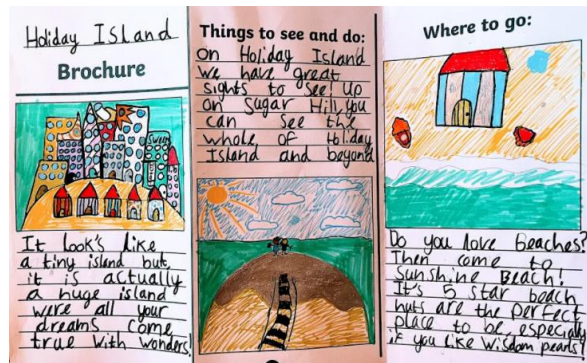 Holiday Island
Brochure
SWEETS
It look's like
a tiny island but
it is actually
a huge island
were all your
dreams come
true with wonders!
Things to see and do:
on Holiday Island
we have great
sights to see! Up
on Sugar Hill, you
can see the
whole of Holiday
Island and beyond
Where to go:
Do you love Beaches?
Then come to
Sunshine Beach!
It's 5 star beach
huts are the perfect
place to be, especialy
if you like wisdom pearls!